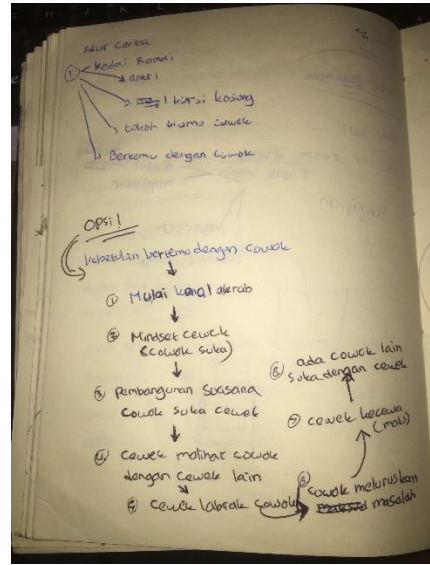 Alur cerita
① Kedai Ramai
antri
1 kursi kosong
tokoh utama cewek
Bertemu dengan cowok
OPSI 1
kebetulan bertemu dengan cowok
① Mulai kenal akrab
② Mindset cewek
(cowok suka)
③ Pembangunan suasana
cowok suka cewek
④ cewek melihat cowok
dengan cewek lain
⑤ cewek labrak cowok
⑥ cowok meluruskan
masalah
⑦ cewek kecewa
(malu)
⑧ ada cowok lain
suka dengan cewek